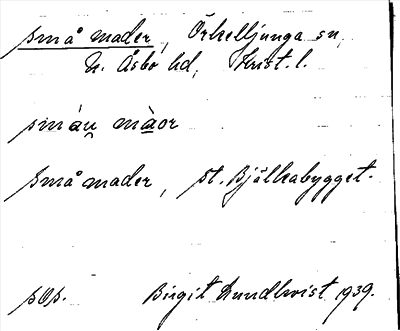 små mader, Örkelljunga sn,
N. Åsbo hd, Krist. l.
smáu màor
Små mader, st. Bjälkabygget.
sOp. Birgit Lundkvist 1939.